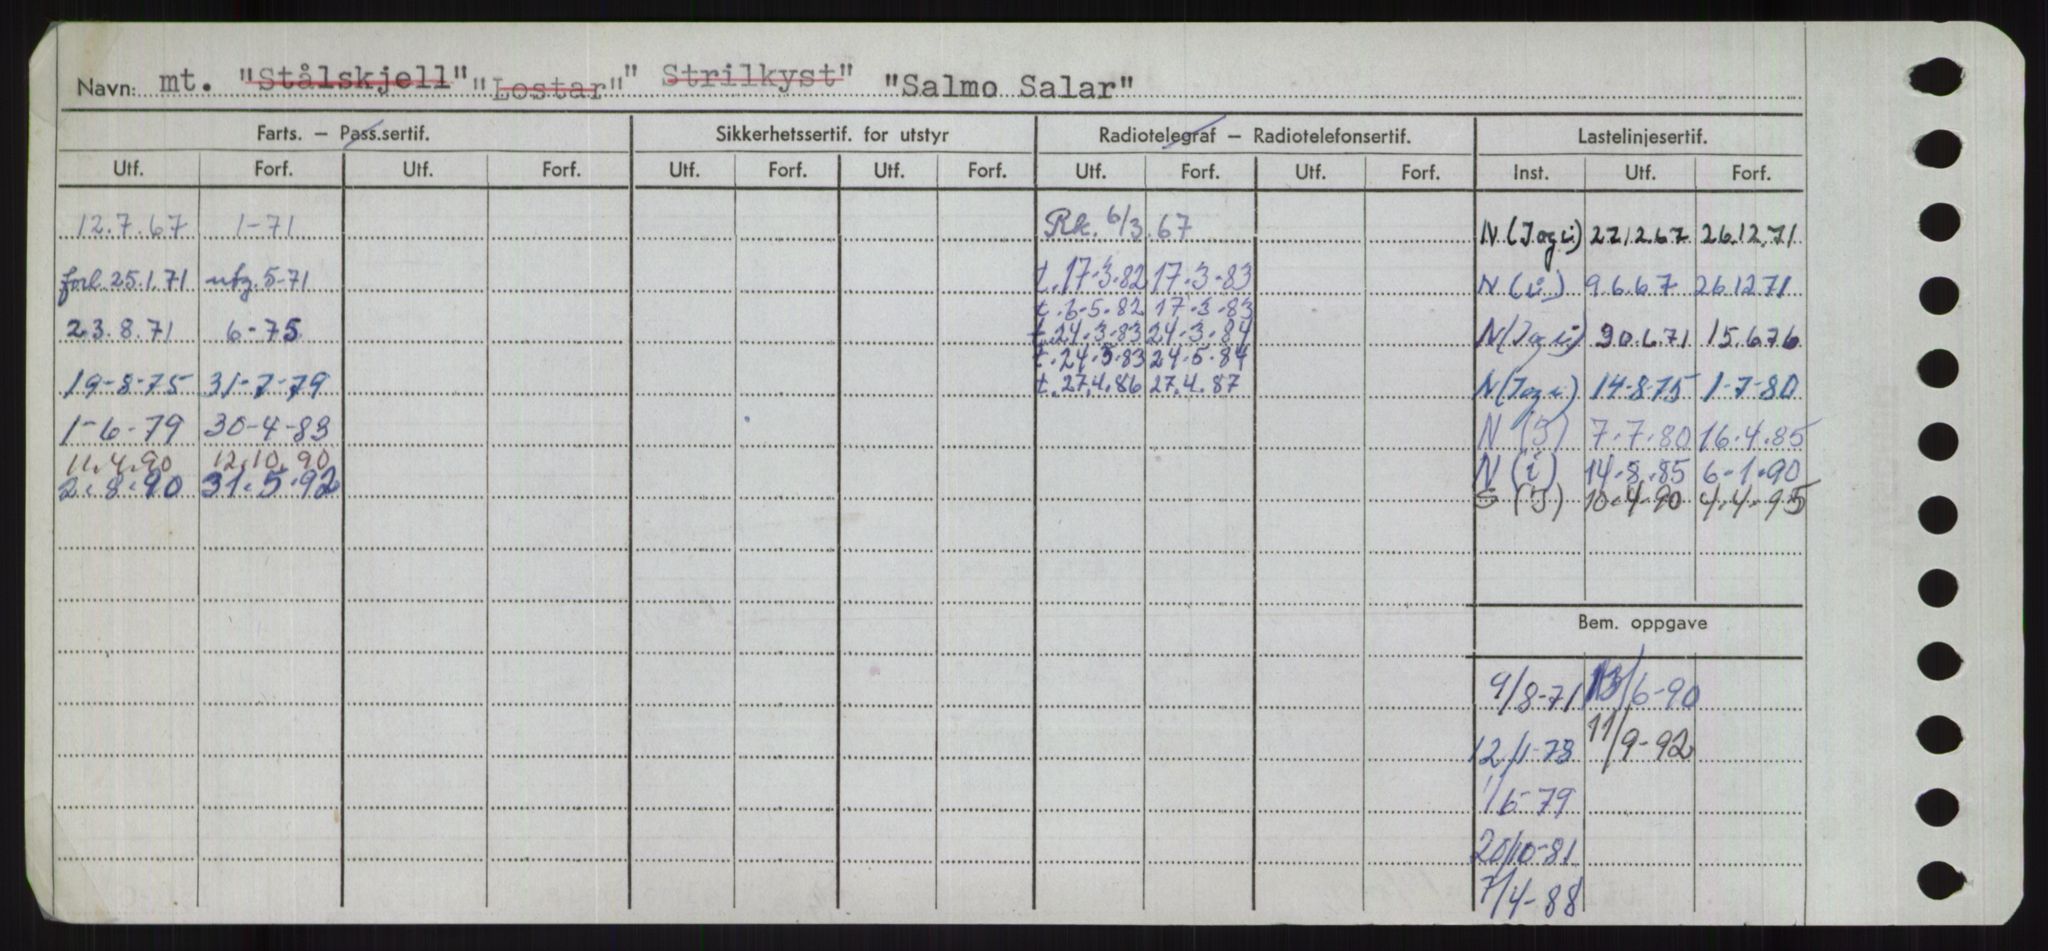 Navn: mt. "Stålskjell" "Lostar" "Strilkyst" "Salmo Salar"
Farts. — Pass.sertif. Sikkerhetssertif. for utstyr Radiotelegraf — Radiotelefonsertif. Lastelinjesertif.
Utf. Forf. Utf. Forf. Utf. Forf. Utf. Forf. Utf. Forf. Utf. Forf. Inst. Utf. Forf.
12.7.67 1-71 Rk. 6/3.67 N (I og i) 27.12.67 26.12.71
forl. 25.1.71 utg. 5-71 t. 17-3-82 17-3-83 N (i) 9.6.67 26.12.71
t. 6-5.82 17-3-83
23.8.71 6-75 t. 24-3-83 24-3-84 N (I og i) 30.6.71 15.6.76
t. 24-5-83 24-5-84
19-8-75 31-7-79 t. 27.4.86 27.4.87 N (I og i) 14-8-75 1-7-80
1-6-79 30-4-83 N (I) 7.7.80 16.4.85
11.4.90 12.10.90 N (i) 14.8.85 6-1-90
2.8.90 31.5.92 S (I) 10.4.90 4.4.95
Bem. oppgave
9/8-71 13/6-90
12/1-78 11/9-92
1/6-79
20/10-81
7/4-88